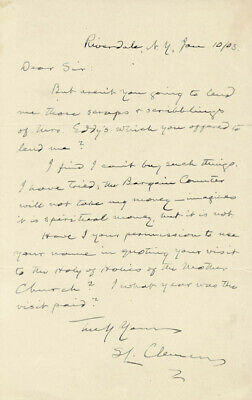 Riverdale, N.Y. Jan 10/03.
Dear Sir:
But aren't you going to lend
me those scraps & scribblings
of Mrs. Eddy's which you offered to
lend me?
I find I can't buy such things.
I have tried, the Bargain Counter
will not take my money—imagines
it is spiritual money, but it is not.
Have I your permission to use
your name in quoting your visit
to the Holy of Holies of the Mother
Church? & what year was the
visit paid?
Truly Yours
SL. Clemens